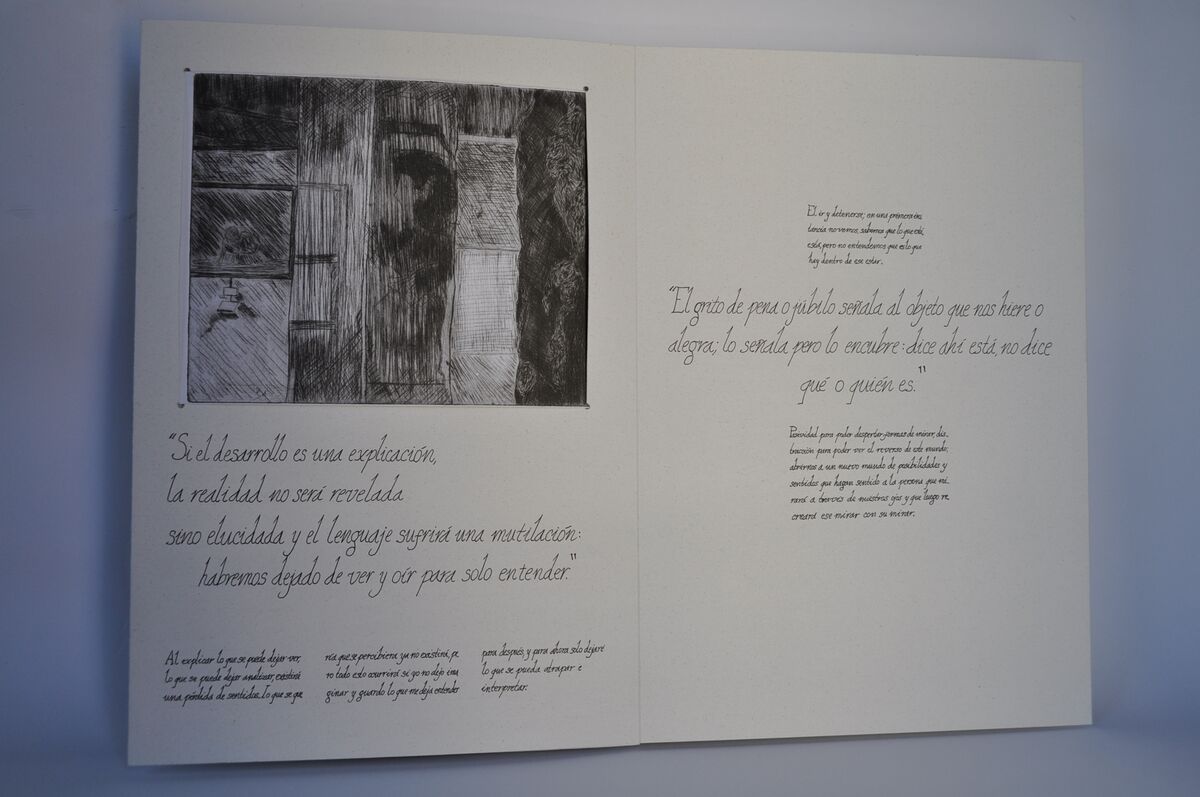 “Si el desarrollo es una explicación,
la realidad no será revelada
sino elucidada y el lenguaje sufrirá una mutilación:
habremos dejado de ver y oír para solo entender."
Al explicar lo que se puede dejar ver,
lo que se puede dejar analizar, existirá
una pérdida de sentidos. Lo que se que
ría que se percibiera ya no existirá, pe
ro todo esto ocurrirá si yo no dejo ima
ginar y guardo lo que me deja entender
para después, y para ahora solo dejaré
lo que se pueda atrapar e
interpretar.
El ir y detenerse; en una primera ins
tancia no vemos, sabemos que lo que está,
está, pero no entendemos que es lo que
hay dentro de ese estar.
“El grito de pena o júbilo señala al objeto que nos hiere o
alegra; lo señala pero lo encubre: dice ahí está, no dice
qué o quién es."
Pasividad para poder despertar formas de mirar, dis
tracción para poder ver el reverso de este mundo;
abrirnos a un nuevo mundo de posibilidades y
sentidos que hagan sentido a la persona que mi
rará a través de nuestros ojos y que luego re
creará ese mirar con su mirar.